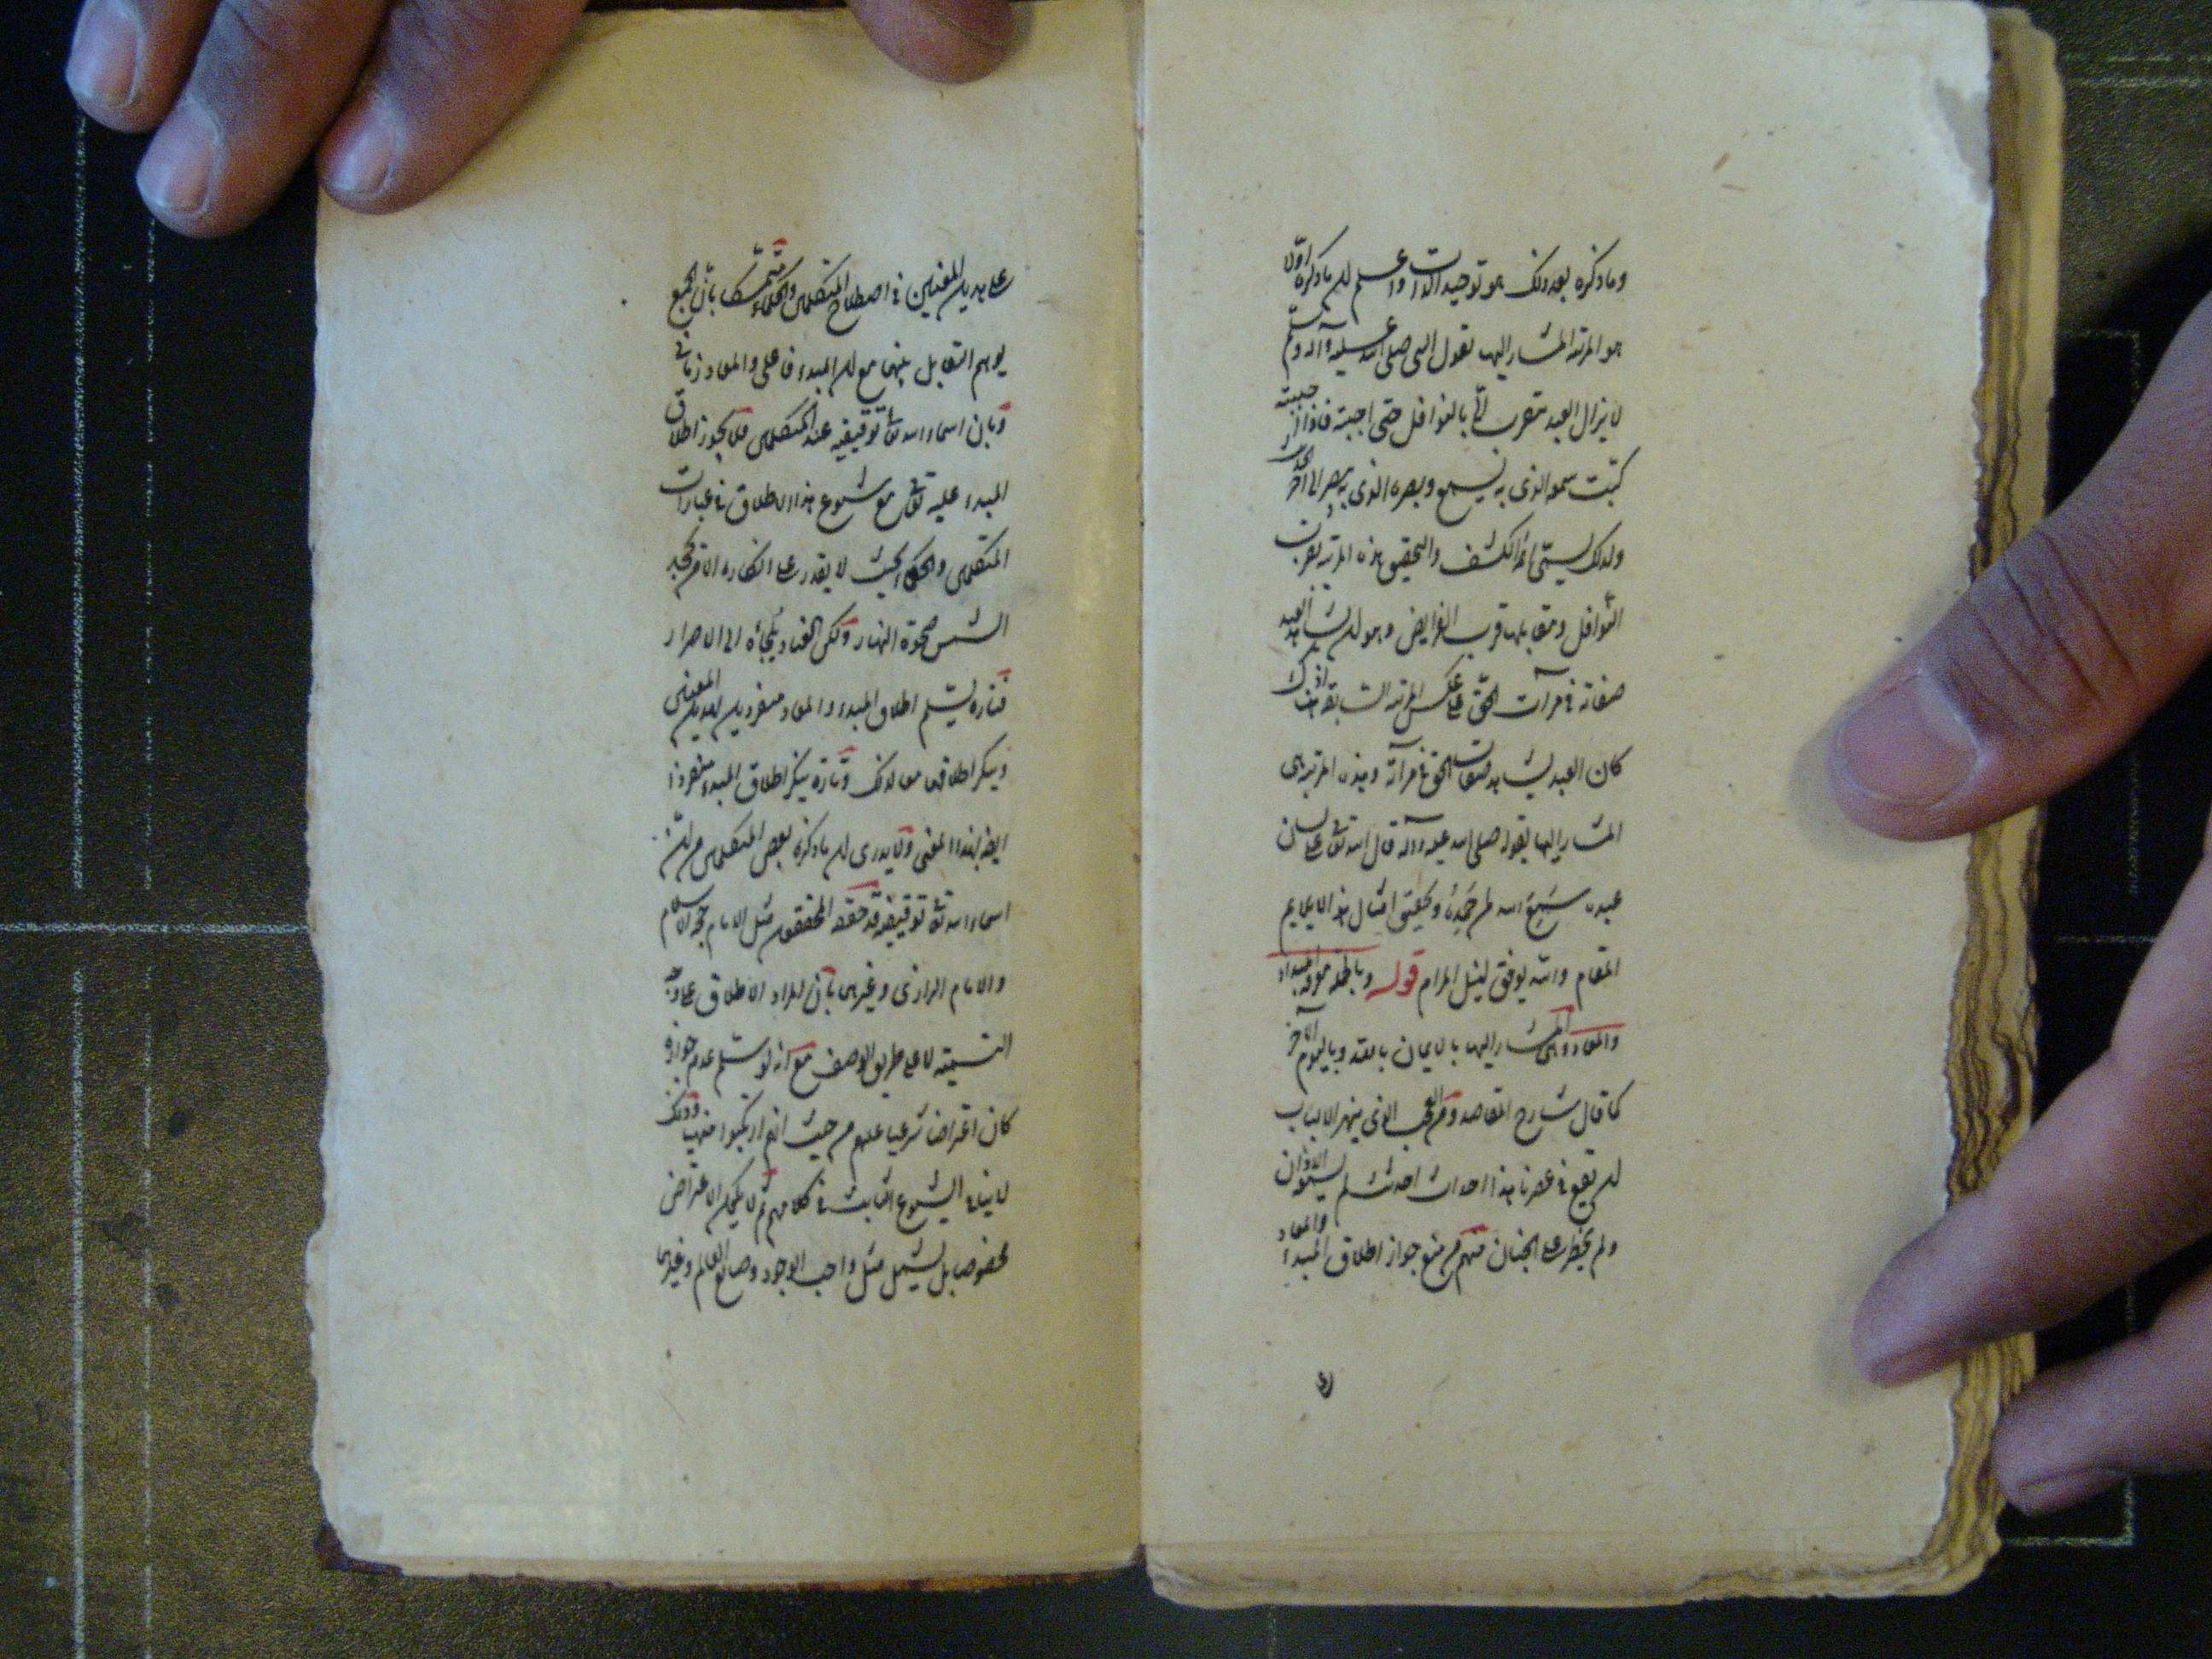 وما ذكره بعد ذلك هو توحيد الذات واعلم ان ما ذكره اولا
هو المرتبة المشار اليها بقول النبي صلى الله عليه وآله وسلم
لا يزال العبد يتقرب الى بالنوافل حتى احبته فاذا احببته
كنت سمعه الذى به يسمع وبصره الذى به يبصر الى آخر الحديث
ولذلك يسمى ائمة الكشف والتحقيق هذه المرتبة بقرب
النوافل ومقابلها قرب الفرايض وهو ان يشاهد العبد
صفاته فى مرآت الحق على عكس المرتبة السابقة اذ هناك
كان العبد يشاهد صفات الحق فى مرآته وهذه المرتبة هى
المشار اليها بقوله صلى الله عليه وآله قال الله تعالى على لسان
عبده سَمِعَ الله لمن حَمِدَهُ وتحقيق امثال هذا لا يلايم
المقام والله يوفق لنيل المرام قوله وباطنه معرفة المبداء
والمعاد وهى المشار اليها بالايمان بالله وباليوم الآخر
كما قال شارح المقاصد ومن العجب الذى يبهر الالباب
ان تقع فى عصرنا هذا احداث احدث لم يسمعه الاذان
ولم يخطر على الجنان منهم من منع جواز اطلاق المبداء والمعاد
على هذين المعنيين فى اصطلاح المتكلمين والحكماء متمسك بأن الجمع
يوهم التقابل بينهما مع ان المبدء فاعلى والمعاد زمانى
وبان اسماء الله تعالى توقيفيه عند المتكلمين فلا يجوز اطلاق
المبدء عليه تعالى مع شيوع هذا الاطلاق فى عبارات
المتكلمين والحكماء بحيث لا يقدر على انكاره الا من يجحد
الشمس ضحوة النهار ولكن العناد يلجأه الى الاصرار
فتارة يسلم اطلاق المبدء والمعاد منفردين لهذين المعنيين
وينكر اطلاقهما معا لذلك وتارة ينكر اطلاق المبدء منفردا
ايضا لهذا المعنى ولا يدرى ان ما ذكره بعض المتكلمين من ان
اسماء الله تعالى توقيفية قد حققه المحققون مثل الامام حجة الاسلام
والامام الرازى وغيرهما بأن المراد الاطلاق على وجه
التسمية لا على طريق الوصف مع انه لو سلم عدم جوازه
كان اعتراضا شرعيا عليهم من حيث انهم ارتكبوا منهيا وذلك
لا ينافى الشيوع الثابت فى كلامهم ثم لا يكون الاعتراض
مخصوصا بل يشمل مثل واجب الوجود وصانع العالم وغيرهما